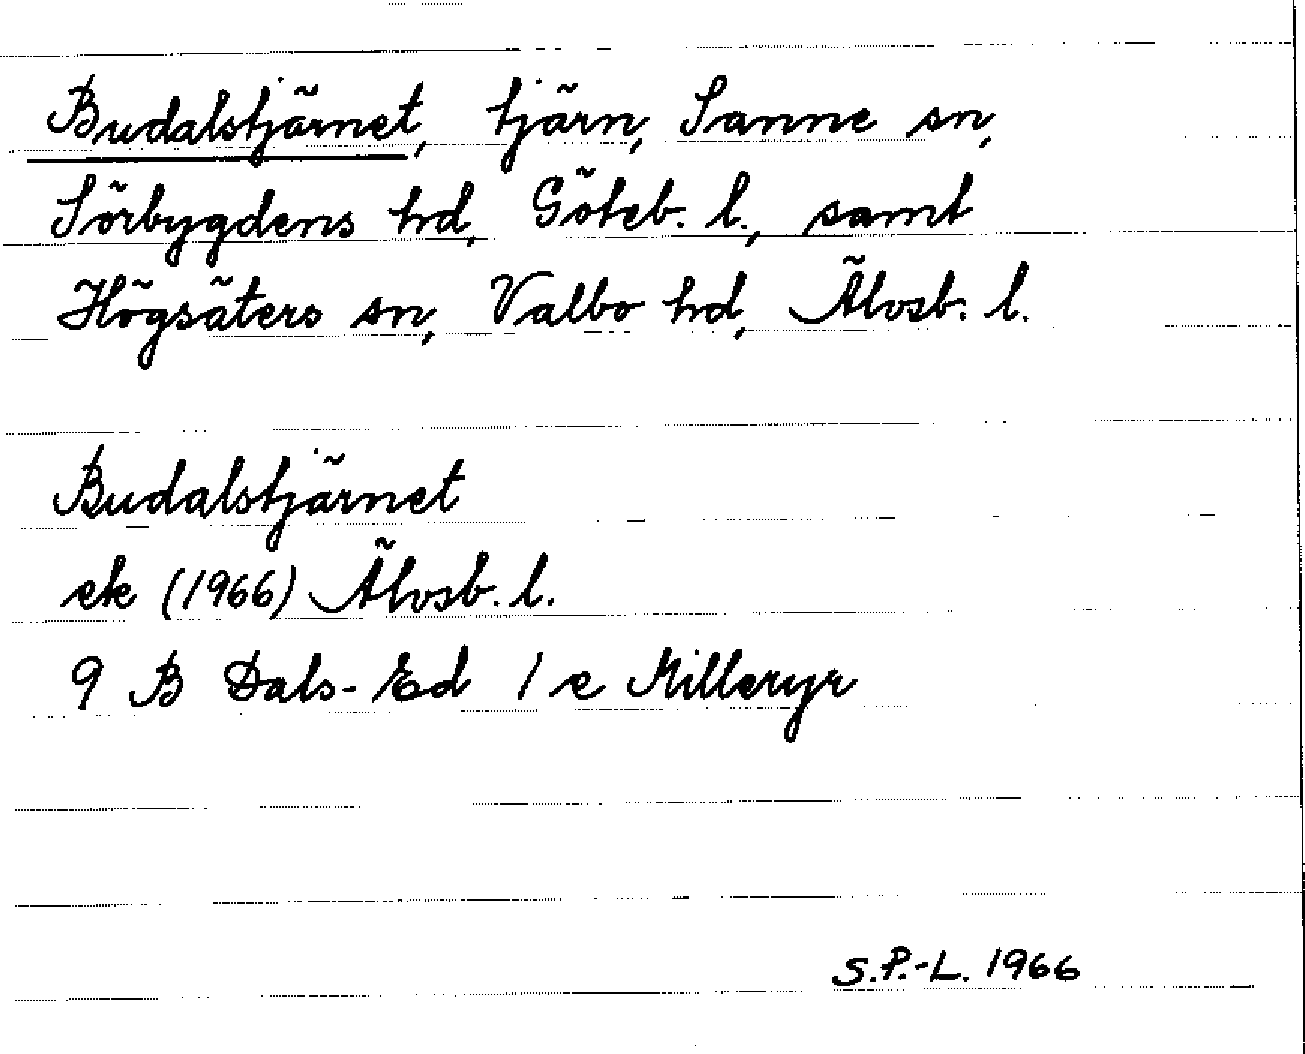 Budalstjärnet, tjärn, Sanne sn,
Sörbygdens hd, Göteb. l., samt
Högsäters sn, Valbo hd, Älvsb. l.
Budalstjärnet
ek (1966) Älvsb. l.
9 B Dals-Ed 1 e Milleryr
S.P.-L. 1966